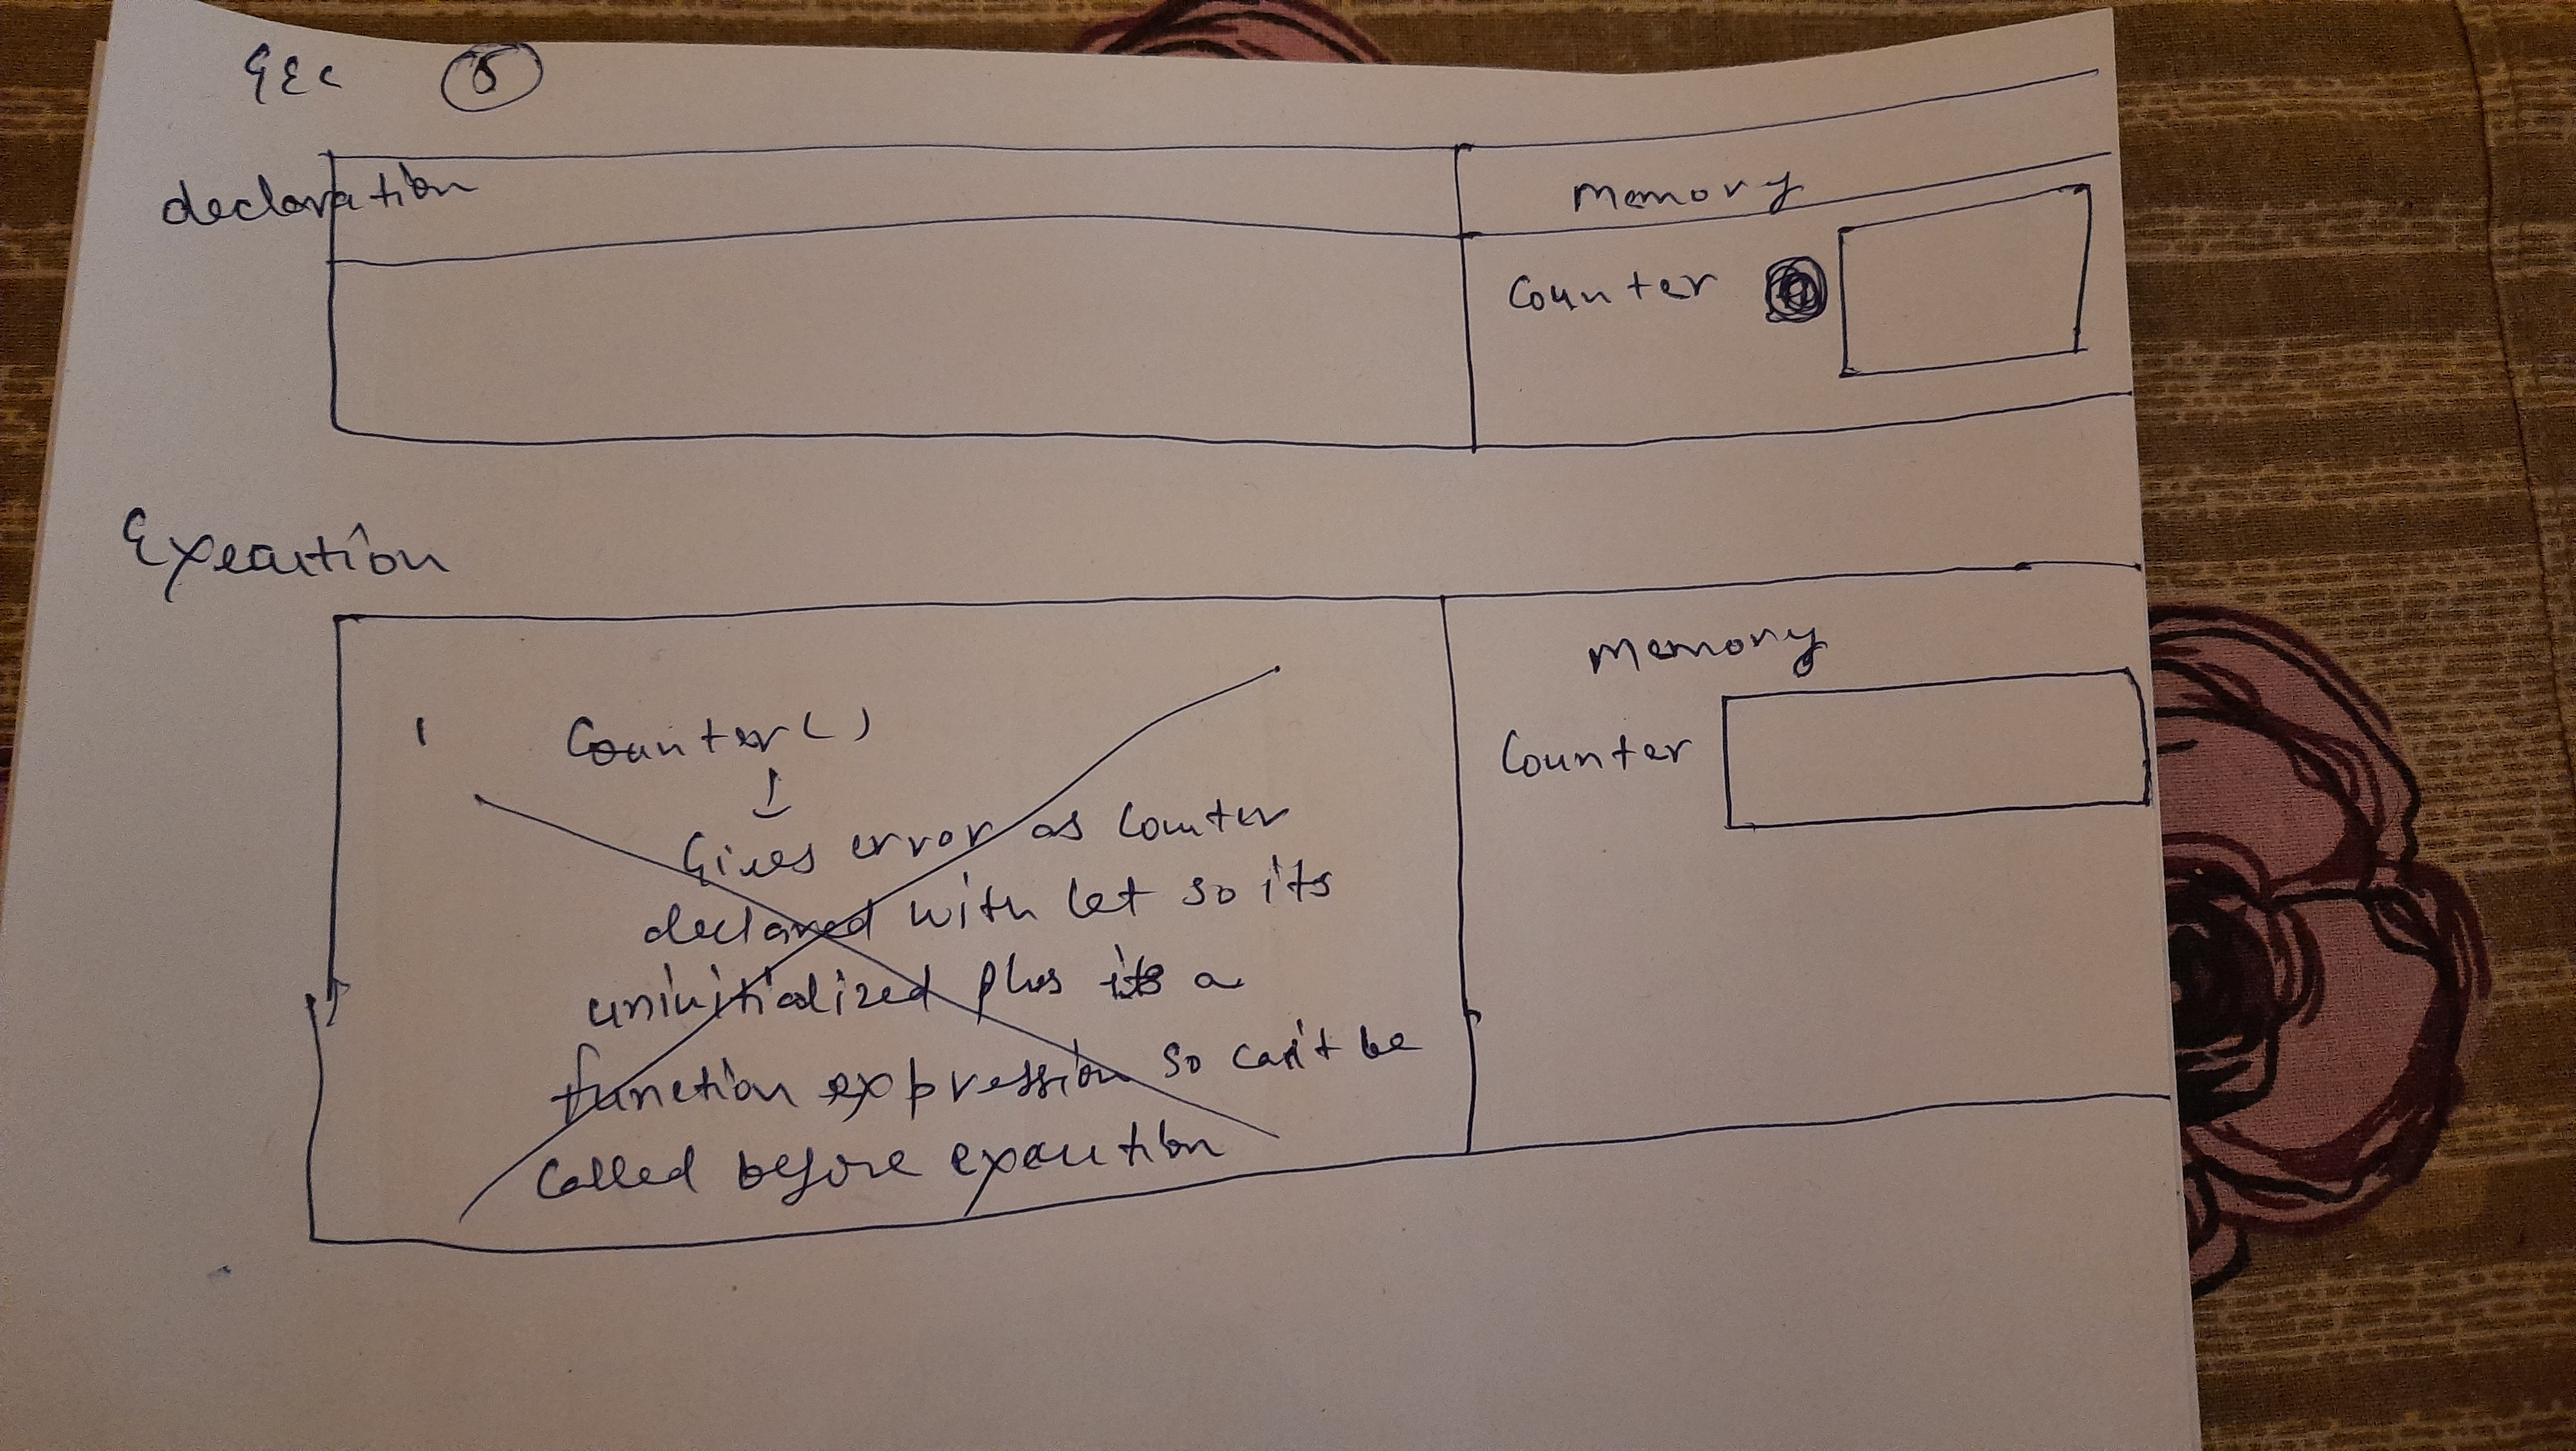 GEC 8
declaration
Memory
Counter
Execution
Memory
1 Counter()
Counter
Gives error as Counter
declared with let so its
uninitialized plus its a
function expression so can't be
called before execution